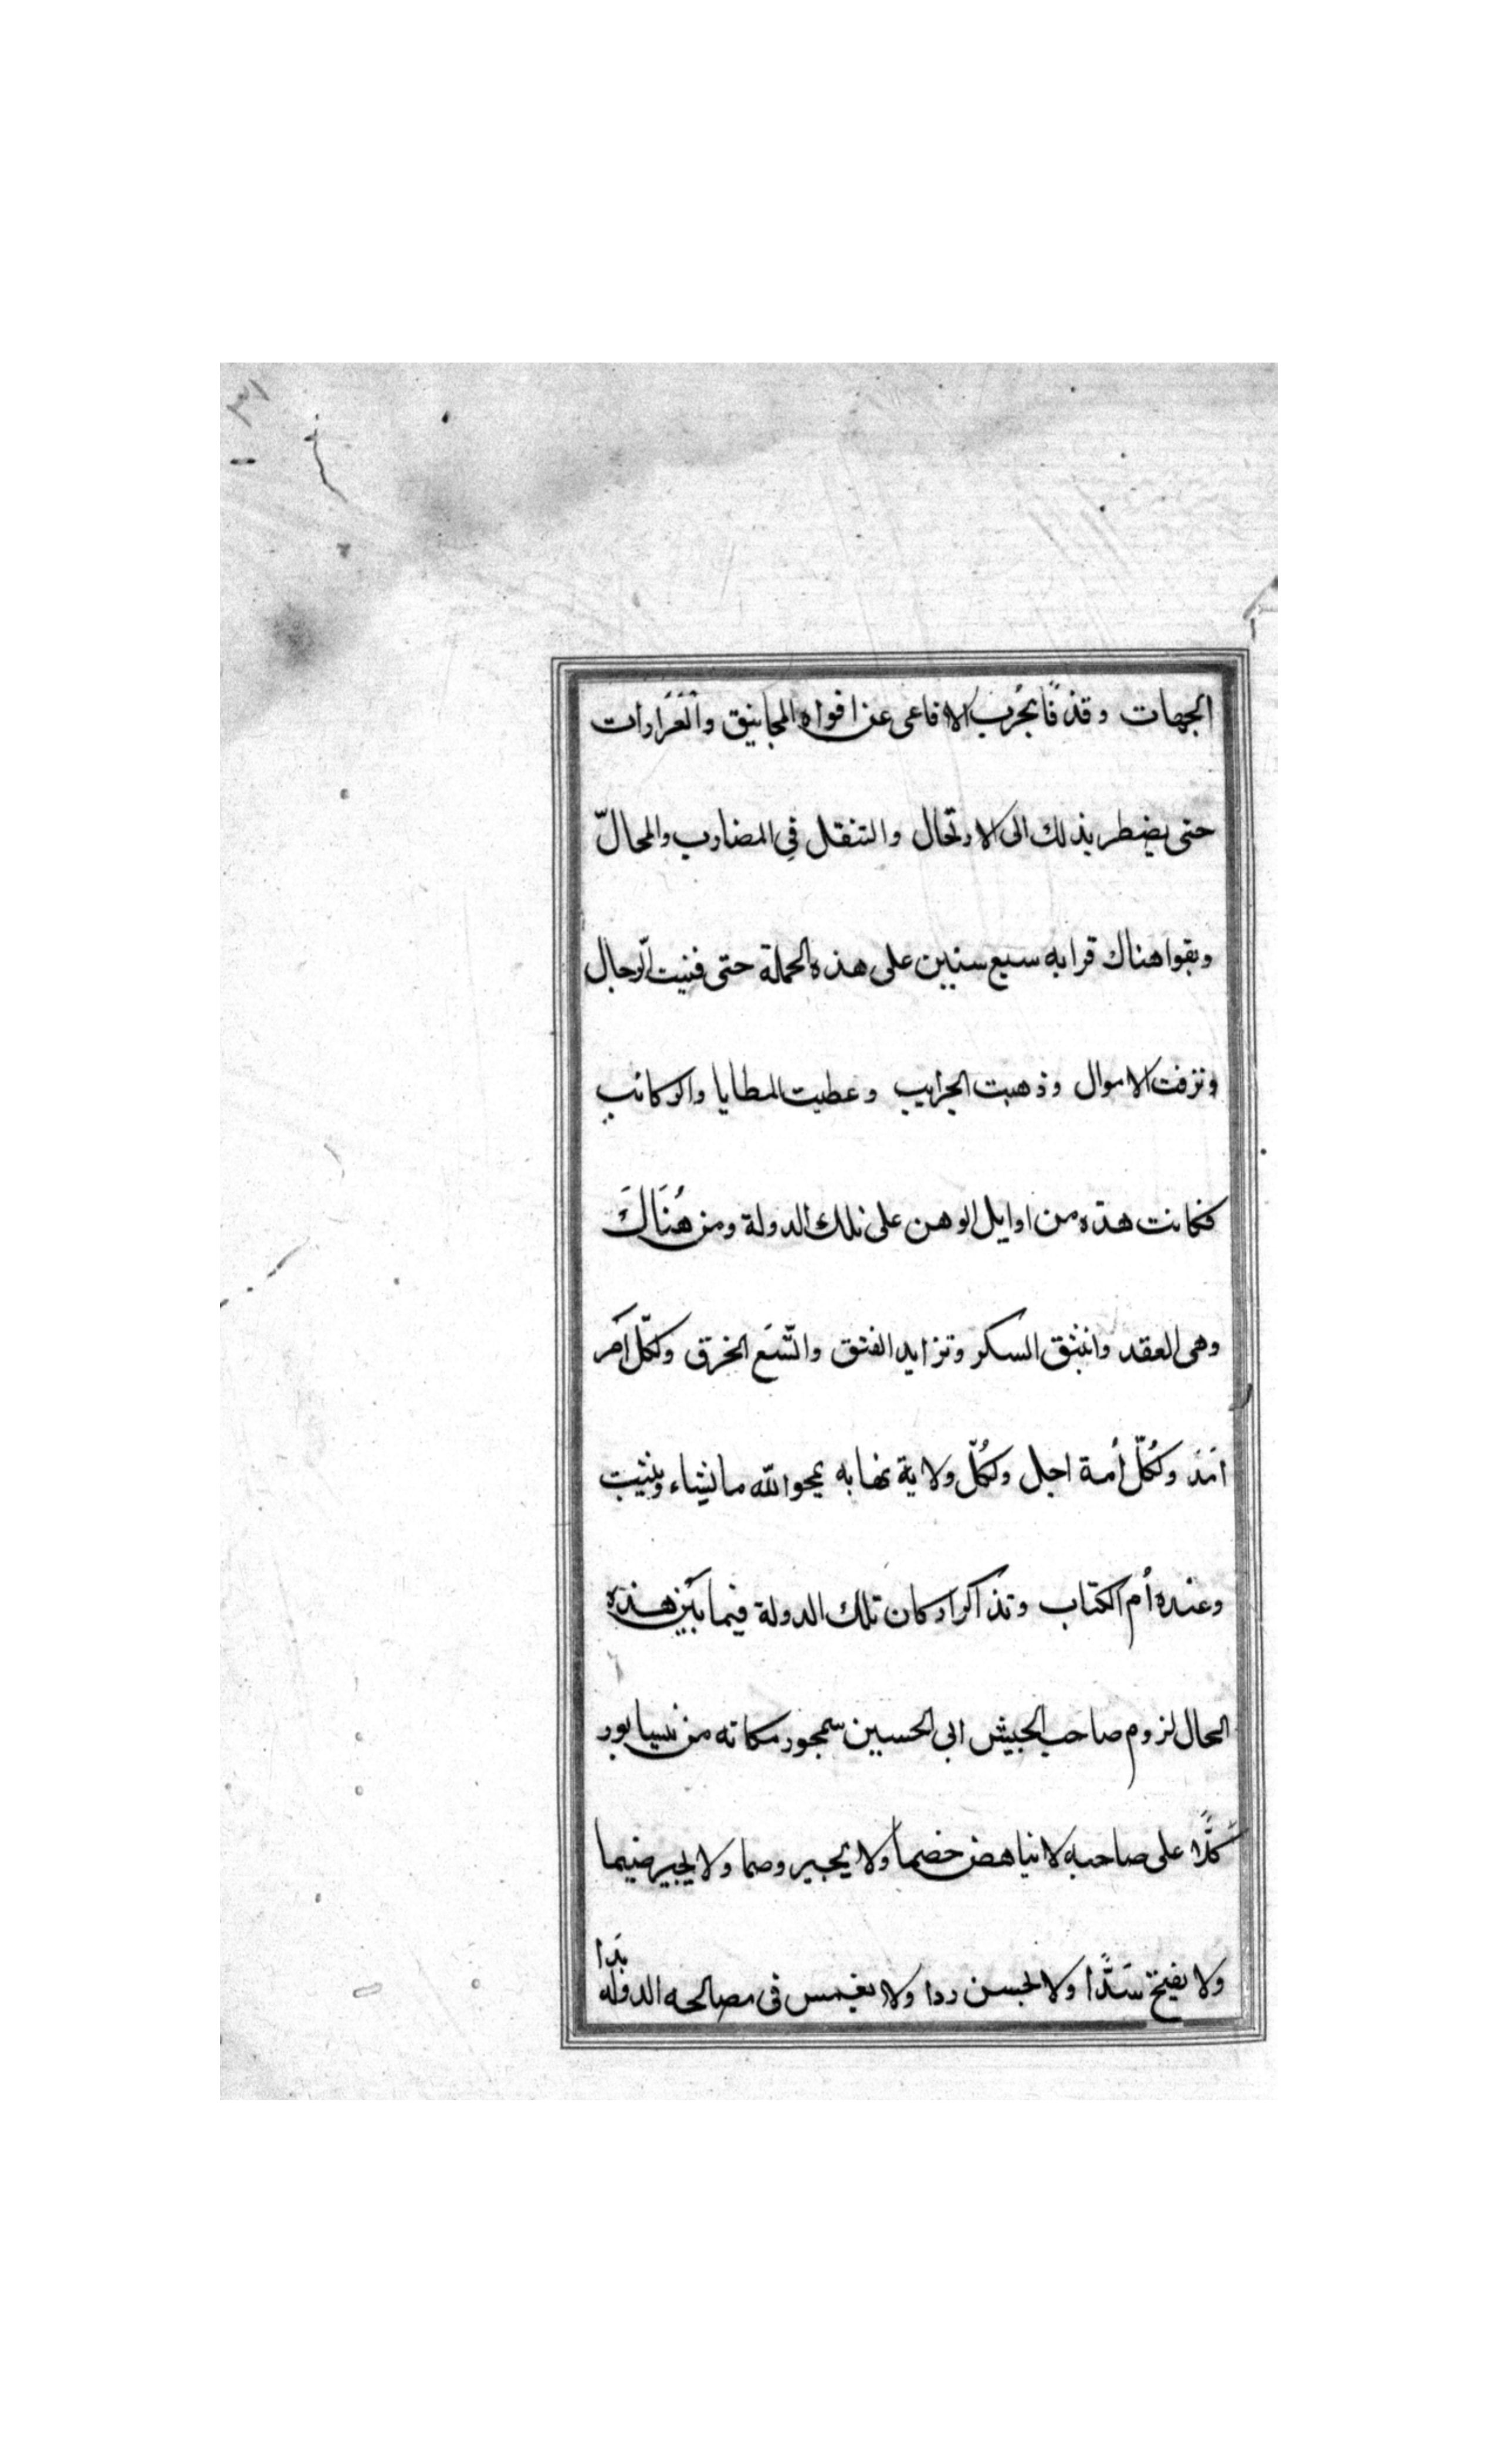 ٣١
الجهات وقذفًا بجُرب الافاعى عن افواه المجانيق والعَرّادات
حتى يضطر بذلك الى الارتحال والتنقل فِي المضارب والمحالّ
وبقوا هناك قرابه سبع سنين على هذه الحملة حتى فنيت الرّجال
ونزفت الاموال وذهبت الجرايب وعطبت المطايا والركائب
فكانت هذه من اوايل الوهن على تلك الدولة ومن هُنَاكَ
وهى العقد وانبثق السكر وتزايد الفتق واتّسَع الخرق ولكلّ اَمر
امَدَ ولكُلّ أمة اجل ولكُلّ ولاية نهابه يمحوا الله ما يشاء ويثبت
وعنده أم الكتاب وتذاكر اركان تلك الدولة فيما بَين هذه
الحال لزوم صاحب الجيش ابى الحسين سمجور مكانه من نيسابور
كَلًّا على صاحبه لا يناهض خصماً ولا يجبر وصما ولا يجير ضيما
ولا يفتح سَدًّا ولا يحسن ردا ولا يغمس فى مصالحه الدوله
يَدا